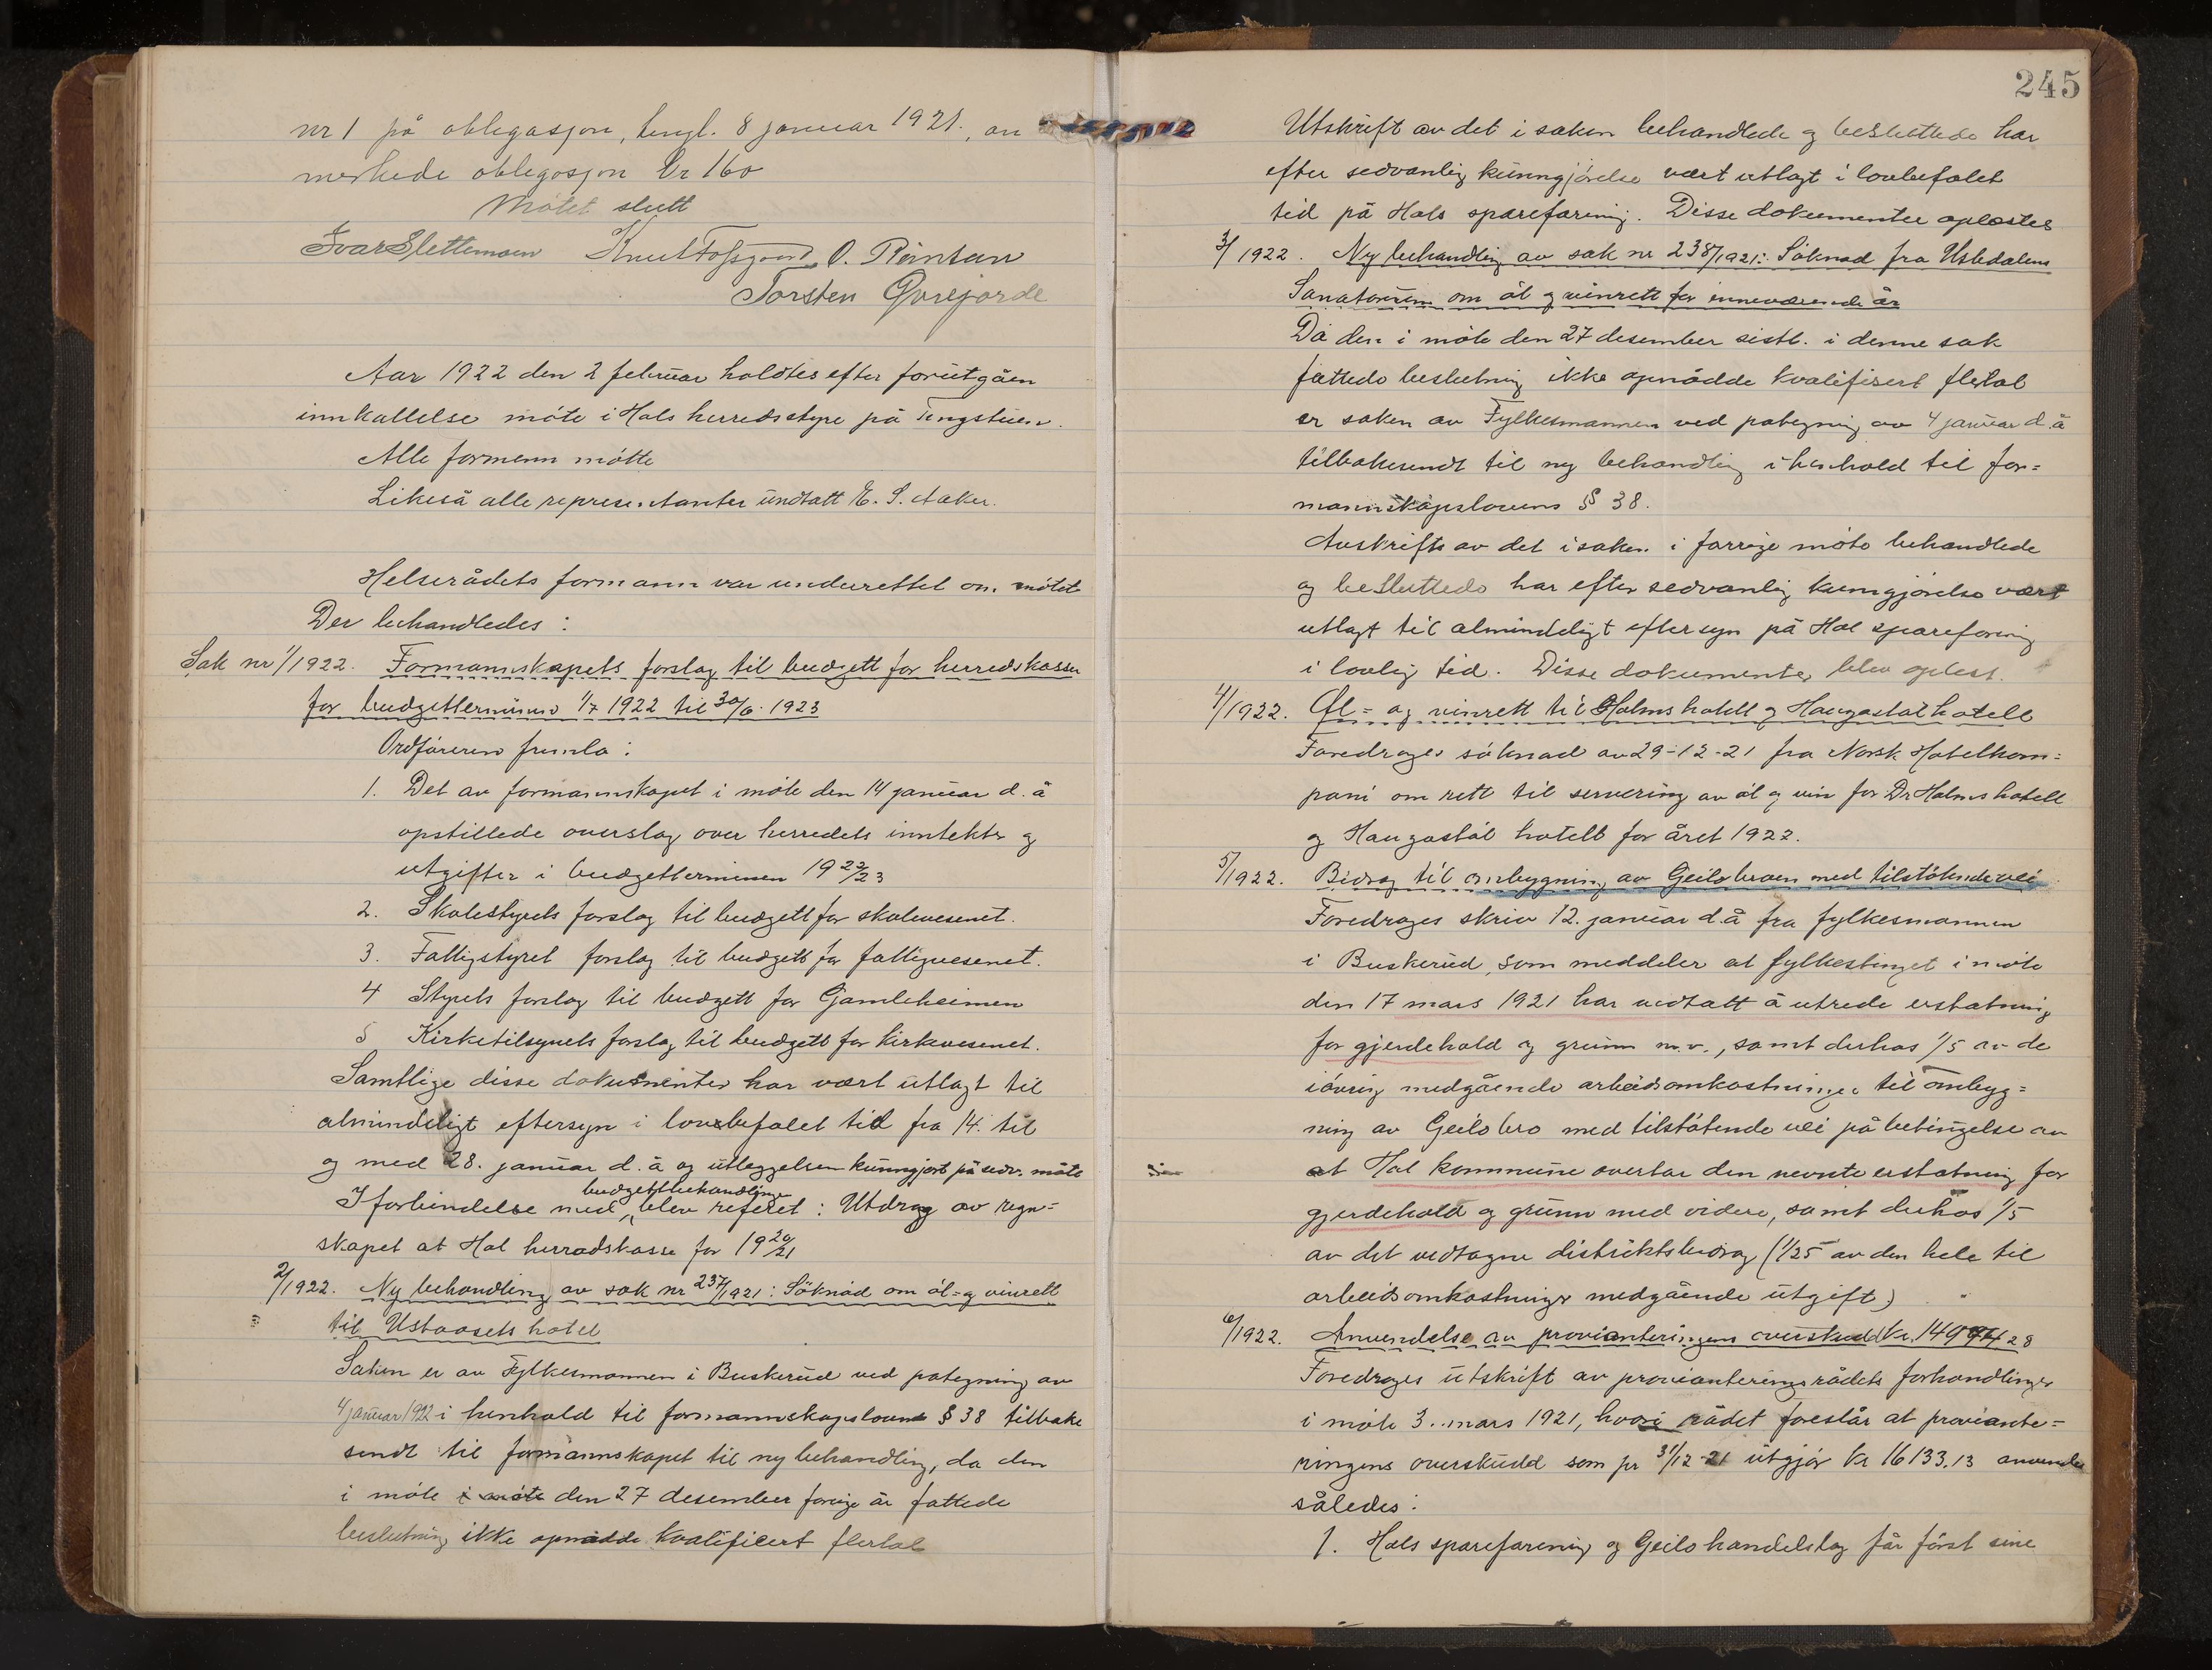 nr 1 på obligasjon, tingl. 8 januar 1921., an
merkede obligasjon kr 160
Mötet slutt
Ivar Slettemoen Knut Fossgaard O. Röintun
Torsten Gvrejorde
Aar 1922 den 2 februar holdtes efter forutgåen
innkallelse möte i Hols herredsstyre på Tingstuen.
Alle formenn mötte
Likeså alle representanter undtatt E. S. Aaker.
Helserådets formann var underrettet om mötet
Der behandledes :
Sak nr 1/1922. Formannskapets forslag til budgett for herredskassen
for budgetterminen 1/7 1922 til 30/6. 1923
Ordföreren fremla :
1. Det av formannskapet i möte den 14 januar d. å
opstillede overslag over herredets inntekter og
utgifter i budgetterminen 1922/23
2. Skolestyrets forslag til budgett for skolevesenet.
3. Fattigstyret forslag til budgett for fattigvesenet.
4 Styrets forslag til budgett for Gamleheimen
5 Kirketilsynets forslag til budgett for kirkevesenet.
Samtlige disse dokumenter har vært utlagt til
almindeligt eftersyn i lovbefalet tid fra 14. til
og med 28. januar d. å og utleggelsen kunngjort på sedv. måte
budgettbehandlingen
I forbindelse med blev referet : Utdrag av regn=
skapet at Hol herredskasse for 1920/21
2/1922. Ny behandling av sak nr 237/1921 : Söknad om öl= og vinrett
til Ustaosets hotel
Saken er av Fylkesmannen i Buskerud ved pategning av
4 januar 1922 i henhold til formannskapslovens § 38 tilbake
sendt til formannskapet til ny behandling, da den
i möte i möte den 27 desember forrige år fattede
beslutning ikke opnådde kvalificert flertal
245
Utskrift av det i saken behandlede og besluttede har
efter sedvanlig kunngjörelse vært utlagt i lovbefalet
tid på Hols sparefорening. Disse dokumenter oplestes
3/1922. Ny behandling av sak nr 238/1921 : Söknad fra Ustedalens
Sanatorium om öl og vinrett for inneværende år
Da den i möte den 27 desember sistl. i denne sak
fattede beslutning ikke opnådde kvalifisert flertal
er saken av Fylkesmannen ved pategning av 4 januar d.å
tilbakesendt til ny behandling i henhold til for=
mannskapslovens § 38.
Avskrifts av det i saken i forrige möte behandlede
og besluttede har efter sedvanlig kunngjörelse vært
utlagt til almindeligt eftersyn på Hol spareforening
i lovlig tid. Disse dokumenter blev oplest.
4/1922. Öl= og vinrett til Holms hotell og Haugastöl hotell
Foredroges söknad av 29-12-21 fra Norsk Hotelkom=
pani om rett til servering av öl og vin for Dr Holms hotell
og Haugastöl hotell for året 1922.
5/1922. Bidrag til ombygning av Geilobroen med tilstötende vei
Foredroges skriv 12. januar d.å fra fylkesmannen
i Buskerud, som meddeler at fylkestinget i möte
den 17 mars 1921 har vedtatt å utrede erstatning
for gjerdehold og grunn m.v., samt derhos 1/5 av de
iövrig medgående arbeidsomkostninger til ombyg=
ning av Geilo bro med tilstötende vei på betingelse av
at Hol kommune overtar den nevnte erstatning for
gjerdehold og grunn med videre, samt derhos 1/5
av det vedtagne distriktsbidrag (1/25 av den hele til
arbeidsomkostninger medgående utgift)
6/1922. Anvendelse av provianteringens overskudd kr.
Foredroges utskrift av provianteringsrådets forhandlinger
i möte 3. mars 1921, hvori rådet foreslår at proviante=
ringens overskudd som pr 31/12-21 utgjör kr 16133.13 anvendes
således :
1. Hols spareforening og Geilo handelslag får först sine